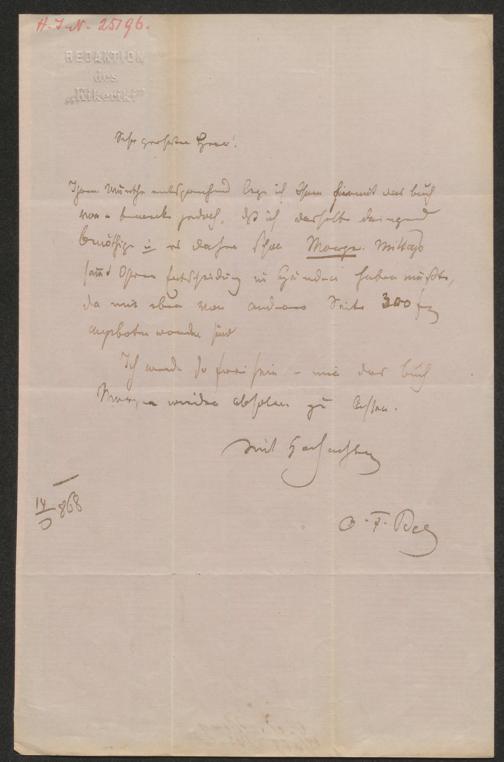 H. I. N. 25196.
REDAKTION
des
„Kikeriki"
Sehr geehrter Herr!
Ihrem Wunsche entsprechend lege ich Ihnen hiermit das Buch
vor – bemerke jedoch, daß ich dasselbe dringend
benöthige u. es daher schon Morgen Mittags
samt Ihrer Entscheidung in Händen haben müßte,
da mir eben von anderer Seite 300 f
angeboten worden sind
Ich werde so frei sein – mir das Buch
Morgen wieder abholen zu lassen.
Mit Hochachtung
O. F. Berg
868